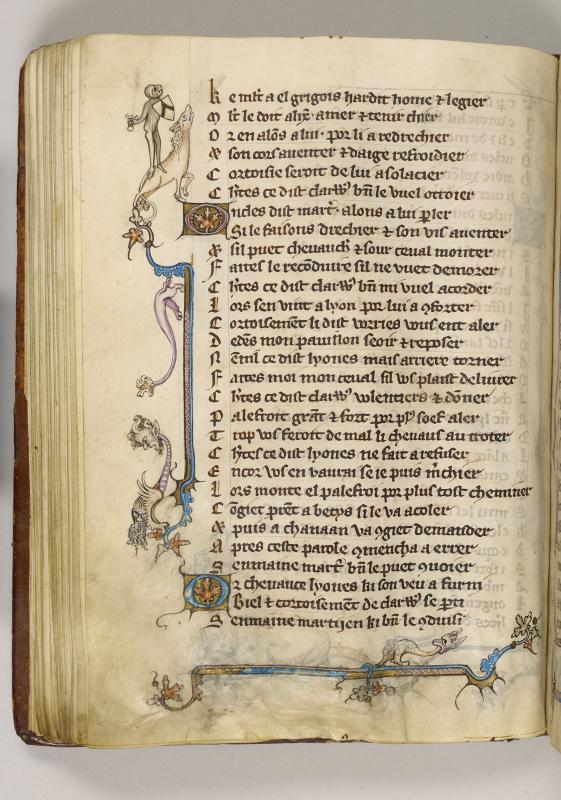 Ke mlt a el grigois hardit home & legier
Mlt le doit ahȝ amer & tenir chier
Or en alōs a lui por li a redrechier
& son cors auenter & daige refroidier
Cortoisie seroit de lui a solacier
Cͭtes ce dist clarꝰ bn̄ le vuel ottoier
Oncles dist mart̄ alons a lui pler
Si le faisons drechier & son vis auenter
& sil puet cheuauch̄ & sour ceual monter
Faites le recōduire sil ne vuet demorer
Cͭtes ce dist clarꝰ bn̄ mi vuel acorder
Lors sen vint a lyon por lui a ꝯforter
Cortoisem̄t li dist vorries vous ent aler
Dedēs mon pauillon seoir & reposer
Nēnil ce dist lyones mais arriere torner
Faites moi mon ceual sil vꝰ plaist deliurer
Cͭtes ce dist clarꝰ volentiers & dōner
Palefroit grāt & fort por pl̄ soef aler
Trop vꝰ feroit de mal li cheuaus au troter
Cͭtes ce dist lyones ne fait a refuser
Encor vꝰ en vaurai se ie puis m̄chier
Lors monte el palefroi por plus tost cheminer
Cōgiet prēt a betys si le va acoler
& puis a chanaan va ꝯgiet demander
Apres ceste parole ꝯmencha a errer
Seumaine mart̄ bn̄ le puet ꝯuoier
Or cheuauce lyones ki son veu a furni
Biel & cortoisemēt de clarꝰ se p̄ti
Seumaine martijen ki bn̄ le ꝯduisi